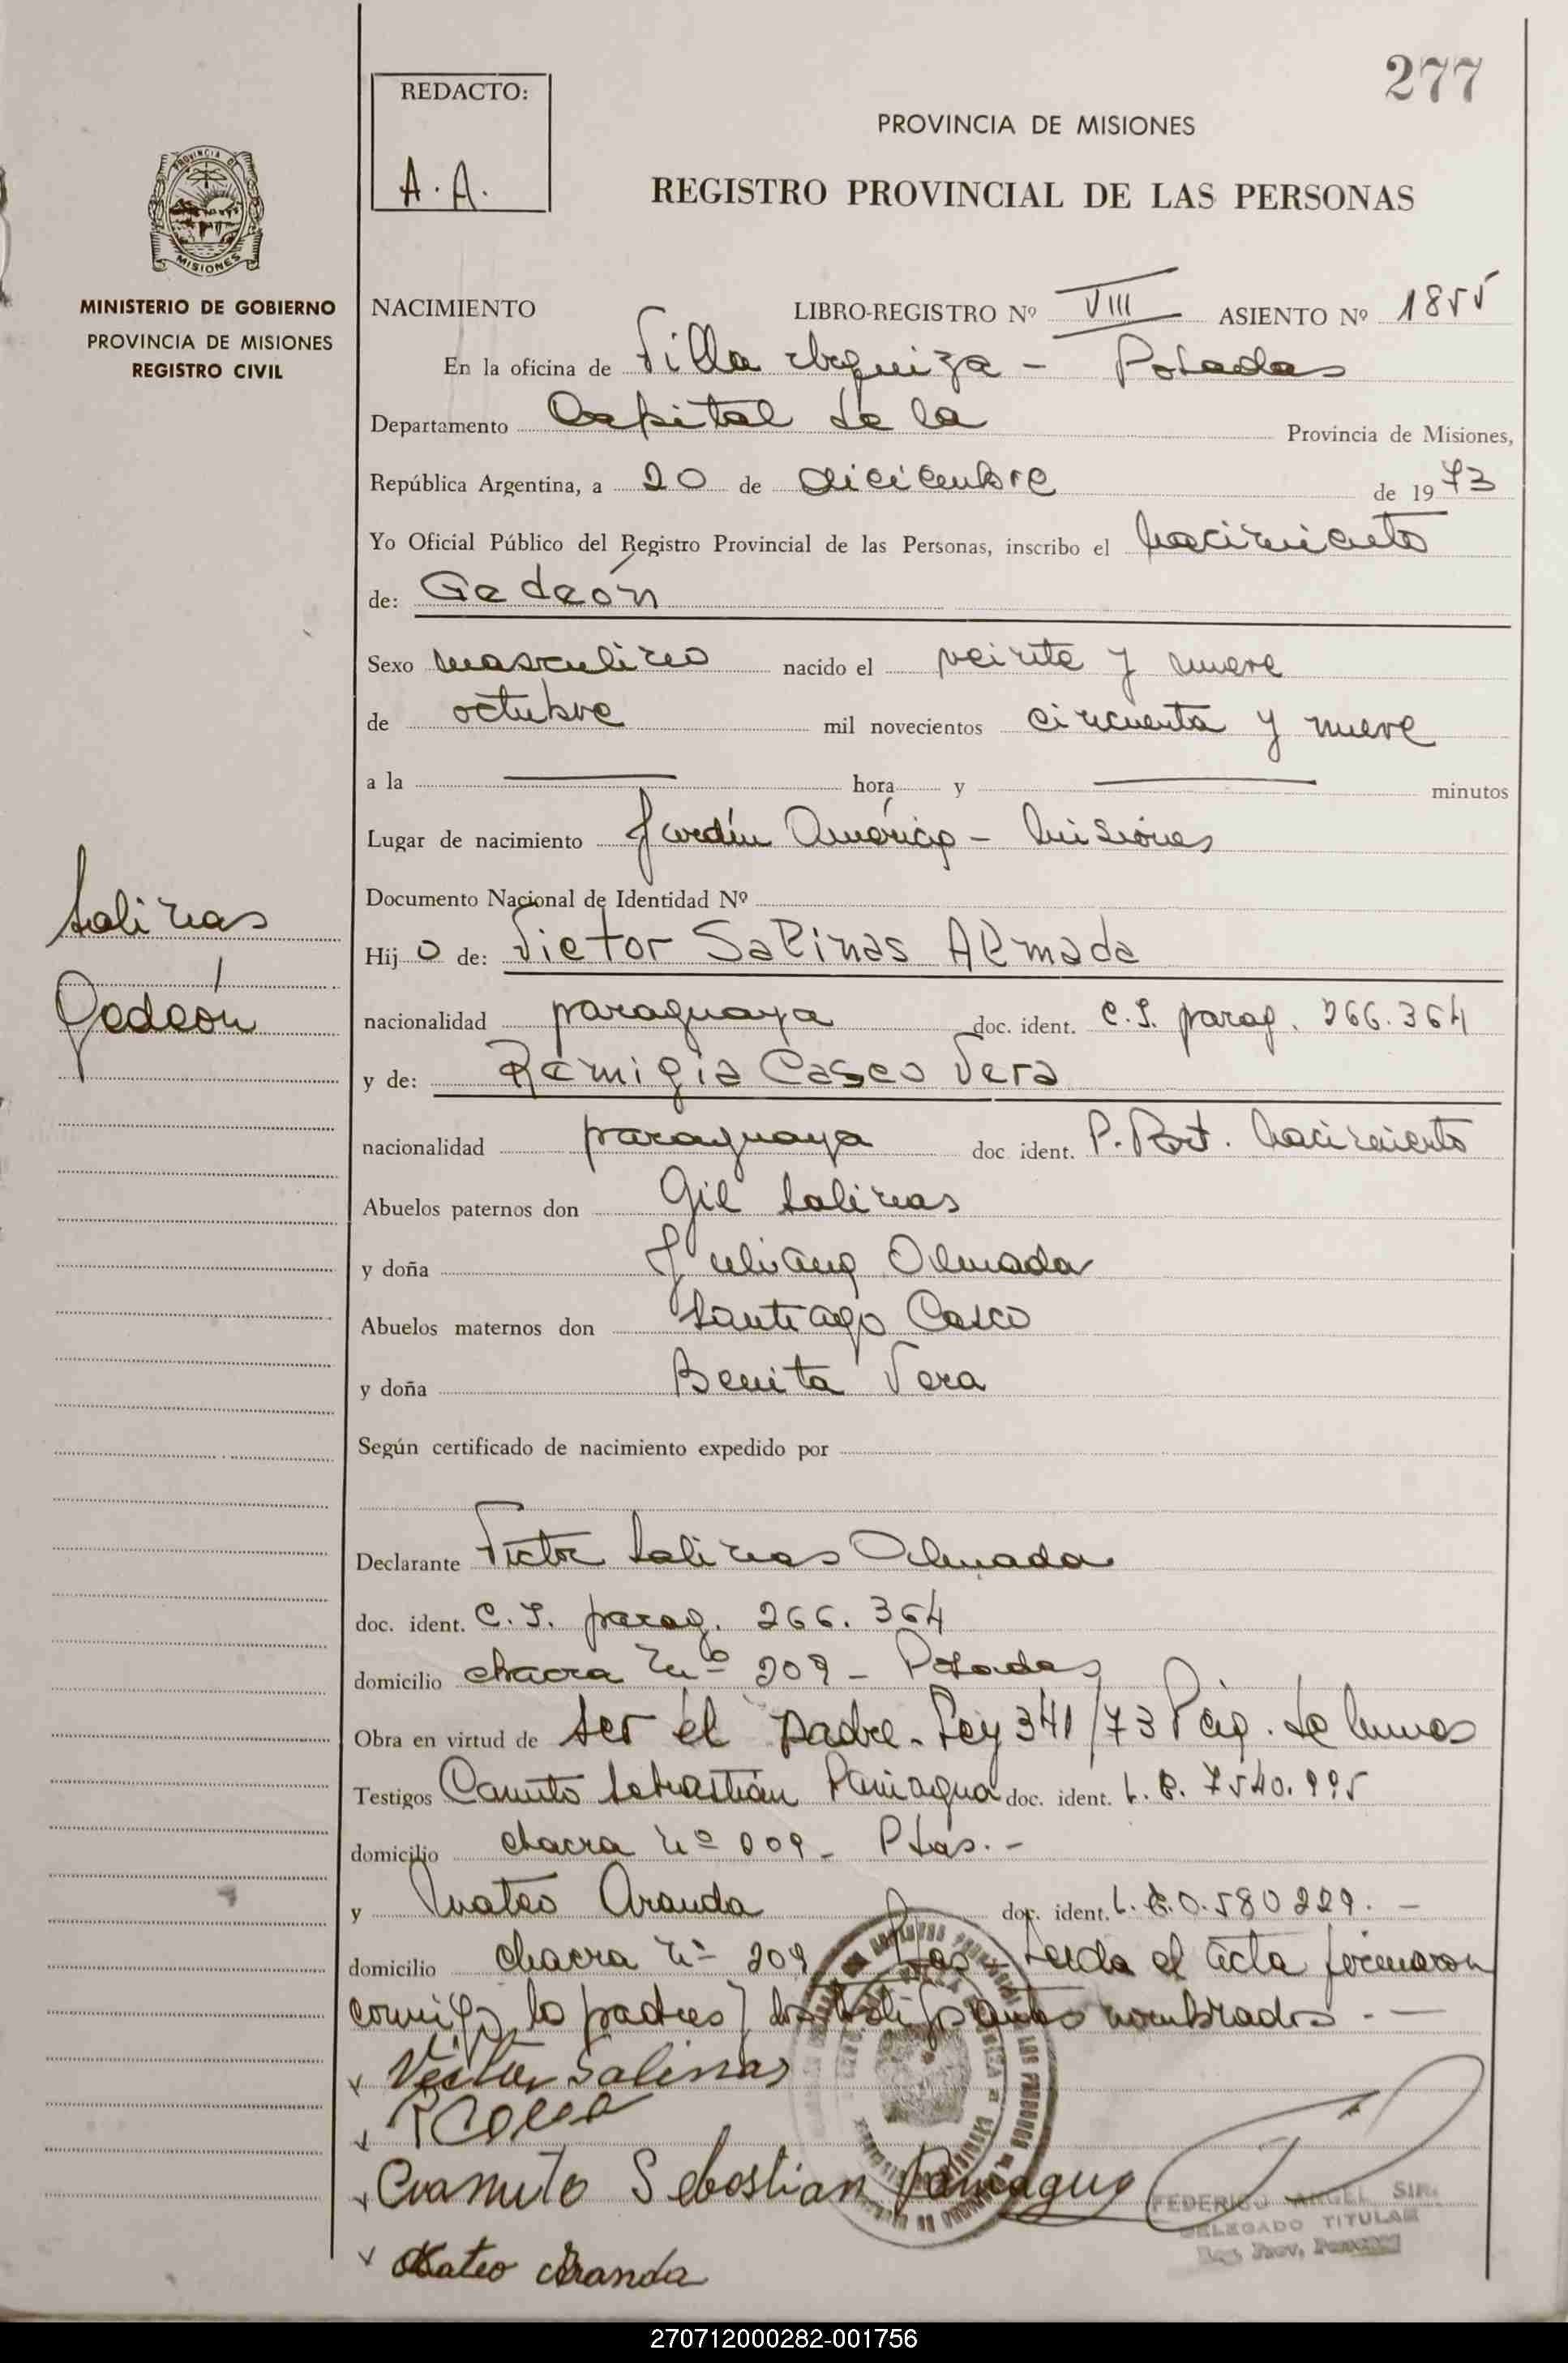 277
REDACTO:
A. A.
PROVINCIA DE MISIONES
REGISTRO PROVINCIAL DE LAS PERSONAS
PROVINCIA DE
MISIONES
MINISTERIO DE GOBIERNO
PROVINCIA DE MISIONES
REGISTRO CIVIL
NACIMIENTO LIBRO-REGISTRO Nº VIII ASIENTO Nº 1855
En la oficina de Villa Urquiza - Posadas
Departamento Capital de la Provincia de Misiones,
República Argentina, a 20 de diciembre de 1973
Yo Oficial Público del Registro Provincial de las Personas, inscribo el nacimiento
de: Gedeón
Sexo masculino nacido el veinte y nueve
de octubre mil novecientos cincuenta y nueve
a la hora y minutos
Lugar de nacimiento Jardín América - Misiones
Documento Nacional de Identidad Nº
Salinas
Gedeón
Hijo de: Victor Salinas Almada
nacionalidad paraguaya doc. ident. C.I. parag. 266.364
y de: Remigia Casco Vera
nacionalidad paraguaya doc. ident. P. Part. Nacimiento
Abuelos paternos don Gil Salinas
y doña Juliana Almada
Abuelos maternos don Santiago Casco
y doña Benita Vera
Según certificado de nacimiento expedido por
Declarante Victor Salinas Almada
doc. ident. C.I. parag. 266.364
domicilio chacra nº 209 - Posadas
Obra en virtud de ser el padre - Ley 341/73
Testigos Canuto Sebastián Paniagua doc. ident. L.E. 7540.995
domicilio chacra nº 009 - Pdas. -
y Mateo Aranda doc. ident. 0.580229. -
domicilio chacra nº 209 - Pdas - Leida el acta firmaron
conmigo los padres y los testigos antes nombrados. -
Victor Salinas
Canuto Sebastian Paniagua
FEDERICO ANGEL
DELEGADO TITULAR
Mateo Aranda
270712000282-001756